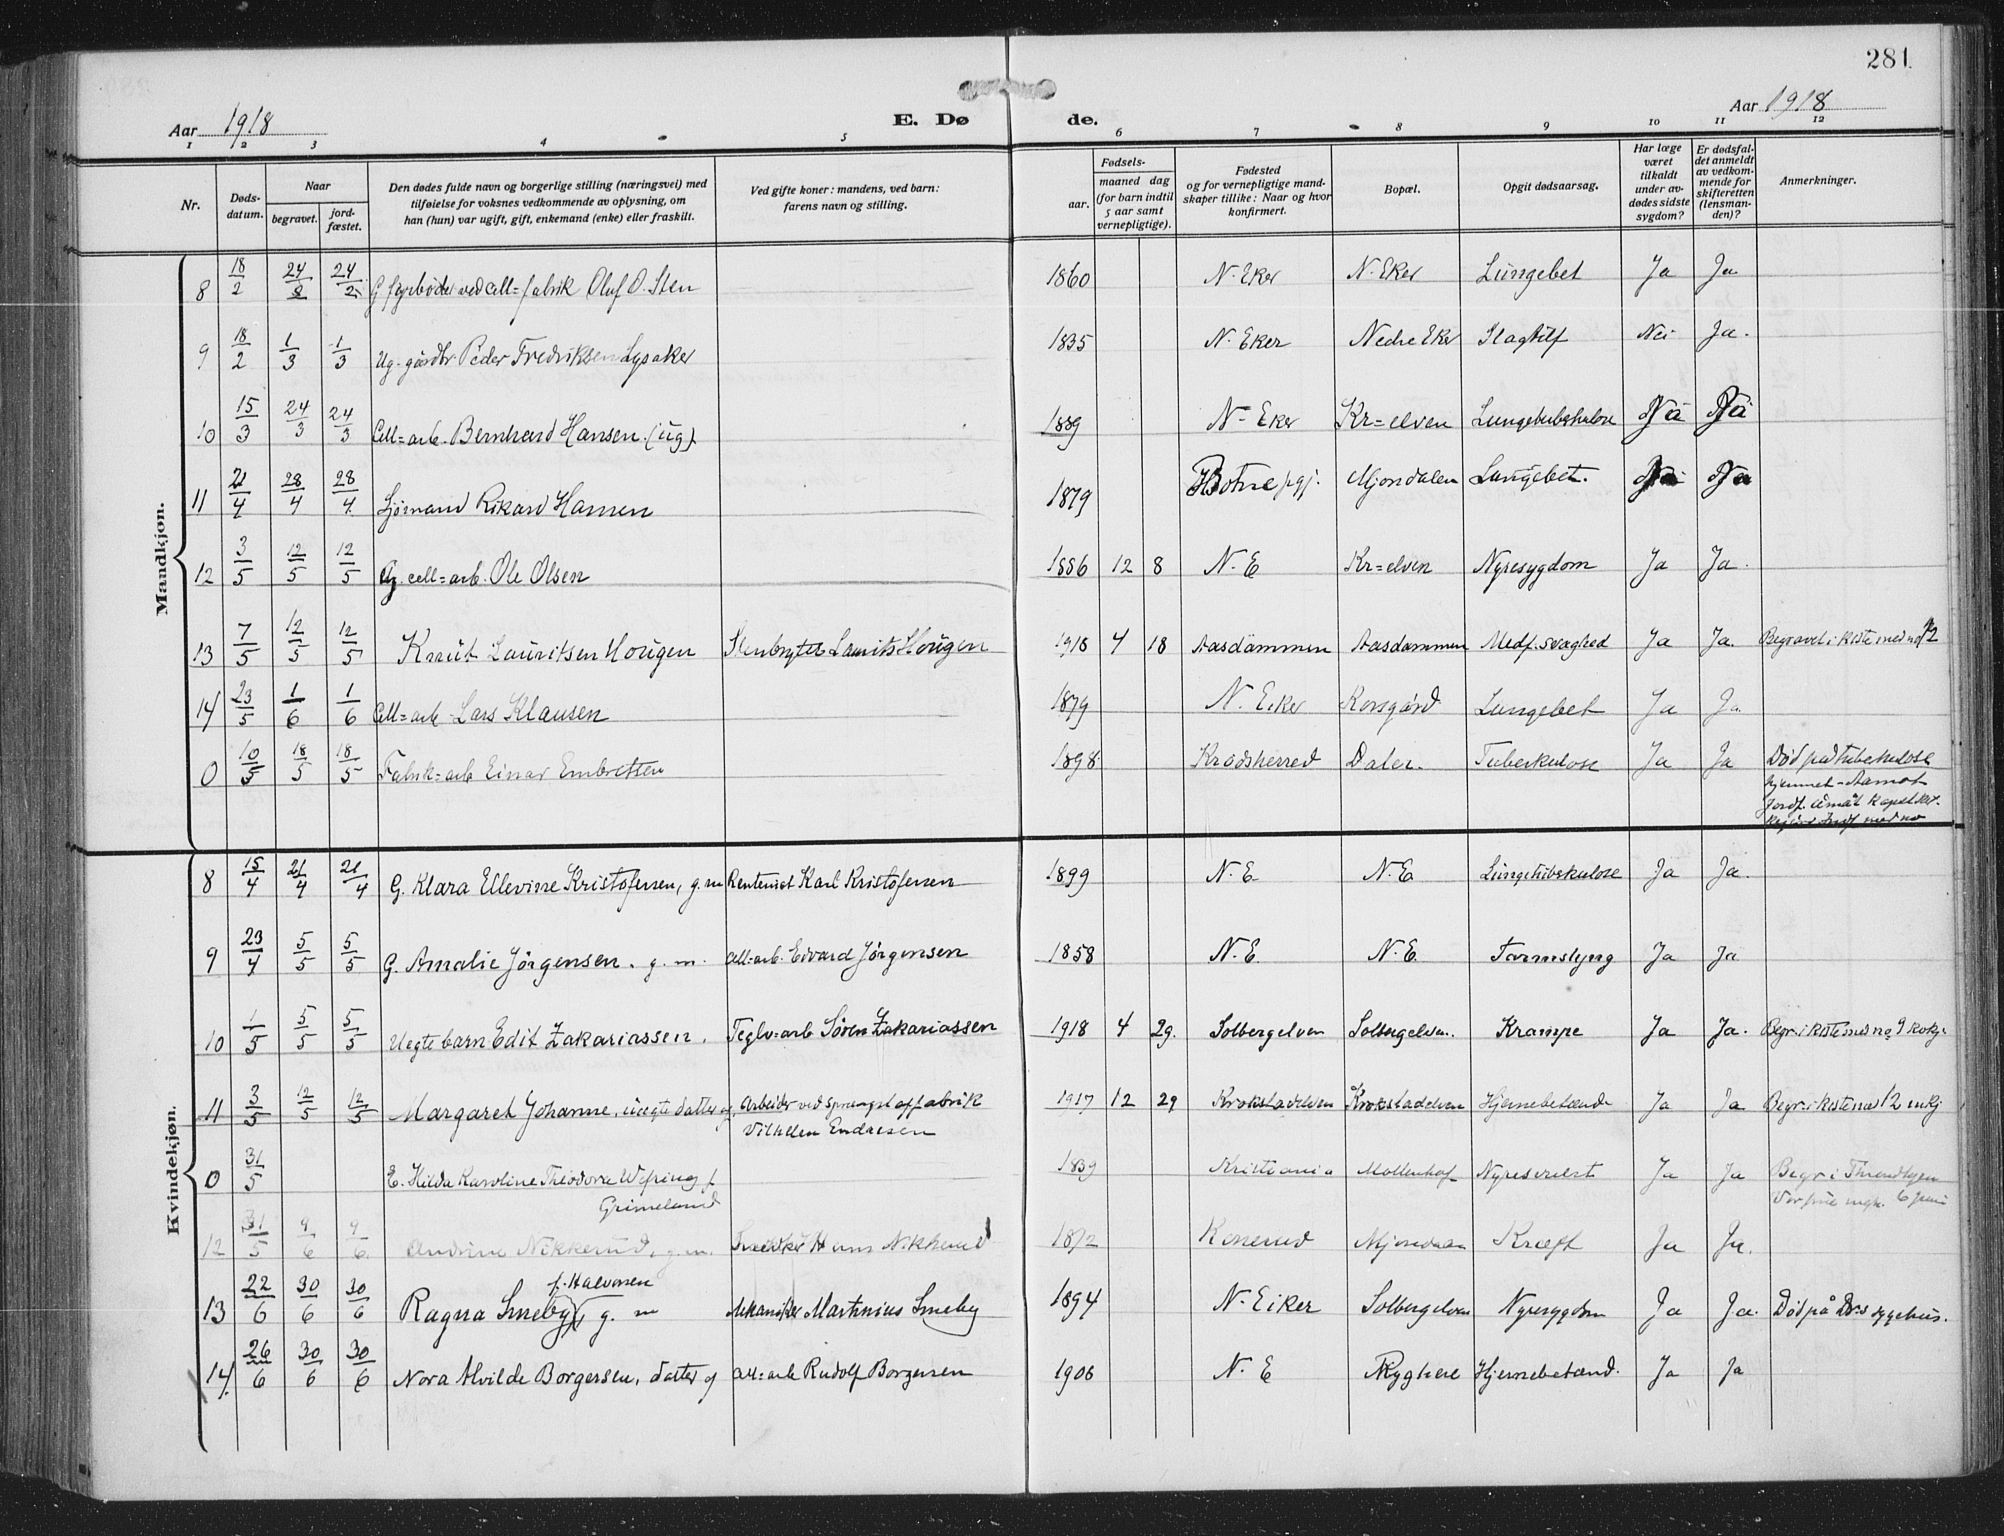 281
Aar 1918
E. Dø
de.
Aar 1918
1 2 3 4 5 6 7 8 9 10 11 12
Nr.
Døds-
datum.
Naar
begravet.
jord-
fæstet.
Den dødes fulde navn og borgerlige stilling (næringsvei) med
tilføielse for voksnes vedkommende av oplysning, om
han (hun) var ugift, gift, enkemand (enke) eller fraskilt.
Ved gifte koner: mandens, ved barn:
farens navn og stilling.
Fødsels-
aar.
maaned dag
(for barn indtil
5 aar samt
vernepligtige).
Fødested
og for vernepligtige mand-
skaper tillike: Naar og hvor
konfirmert.
Bopæl.
Opgit dødsaarsag.
Har læge
været
tilkaldt
under av-
dødes sidste
sygdom?
Er dødsfal-
det anmeldt
av vedkom-
mende for
skifteretten
(lensman-
den)?
Anmerkninger.
Mandkjøn.
8 18/2 24/2 24/2 G fyrbøder ved cell=fabrik Oluf O. Sten 1860 N. Eker N. Eker Lungebet Ja Ja
9 18/2 1/3 1/3 Ug. gårdbr. Peder Fredriksen Lysaker 1835 N. Eker Nedre Eker Slagtilf Nei Ja.
10 15/3 24/3 24/3 Cell=arb. Bernhard Hansen. (ug). 1889 N. Eker Kr=elven Lungetuberkulose
11 21/4 28/4 28/4 Sjømand Rikard Hansen 1879 Botne pgj. Mjøndalen Lungebet.
12 3/5 12/5 12/5 G. cell=arb. Ole Olsen 1886 12 8 N. E Kr=elven Nyresygdom Ja Ja.
13 7/5 12/5 12/5 Knut Lauritsen Hougen Stenbryter Laurits Hougen 1918 4 18 Aasdammen Aasdammen Medf. svaghed Ja Ja. Begravet i kiste med no 12
14 23/5 1/6 1/6 Cell=arb. Lars Klausen 1879 N. Eiker Korsgård Lungebet Ja Ja.
0 10/5 18/5 18/5 Fabrik=arb Einar Embretsen 1898 Krødsherred Daler. Tuberkulose Ja Ja Død på tuberkulose
hjemmet - Aamot
Jordf. Åmåt kapel
Kvindekjøn.
8 15/4 21/4 21/4 G. Klara Ellevine Kristofersen, g. m Rentemst Karl Kristofersen 1899 N. E N. E Lungetuberkulose Ja Ja.
9 23/4 5/5 5/5 G. Amalie Jørgensen. g. m. cell=arb. Edvard Jørgensen 1858 N. E. N. E. Tarmslyng Ja Ja
10 1/5 5/5 5/5 Uegte barn Edit Zakariassen. Teglv=arb Søren Zakariassen 1918 4 29. Solbergelven Solbergelven. Krampe Ja Ja. Begr. i kiste med no 9
11 3/5 12/5 12/5 Margaret Johanne, uegte datter af Arbeider ved sprængstoffabrik 1917 12 29 Krokstadelven Krokstadelven Hjernebetænde Ja Ja Begr. i kiste med 12 mkj
Vilhelm Endresen
0 31/5 E. Hilda Karoline Theodora Wefring f. 1839 Kristiania Møllenhof Nyresvulst Ja Ja Begr i Throndhjem
Grimelund
Vor frue mgh. 6 juni
12 31/5 9/6 9/6 Andrine Nikkerud, g. m. Snedker Hans Nikkerud 1872 Konerud Mjøndalen Kræft Ja Ja.
f. Halvorsen
13 22/6 30/6 30/6 Ragna Smeby, g. m Mekaniker Martinius Smeby 1894 N. Eiker Solbergelven Nyresygdom Ja Ja. Død på Dr=s sygehus.
14. 26/6 30/6 30/6 Nora Alvilde Borgersen, datter af cell=arb Rudolf Borgersen 1906 N. E Ryghere Hjernebetænd. Ja Ja